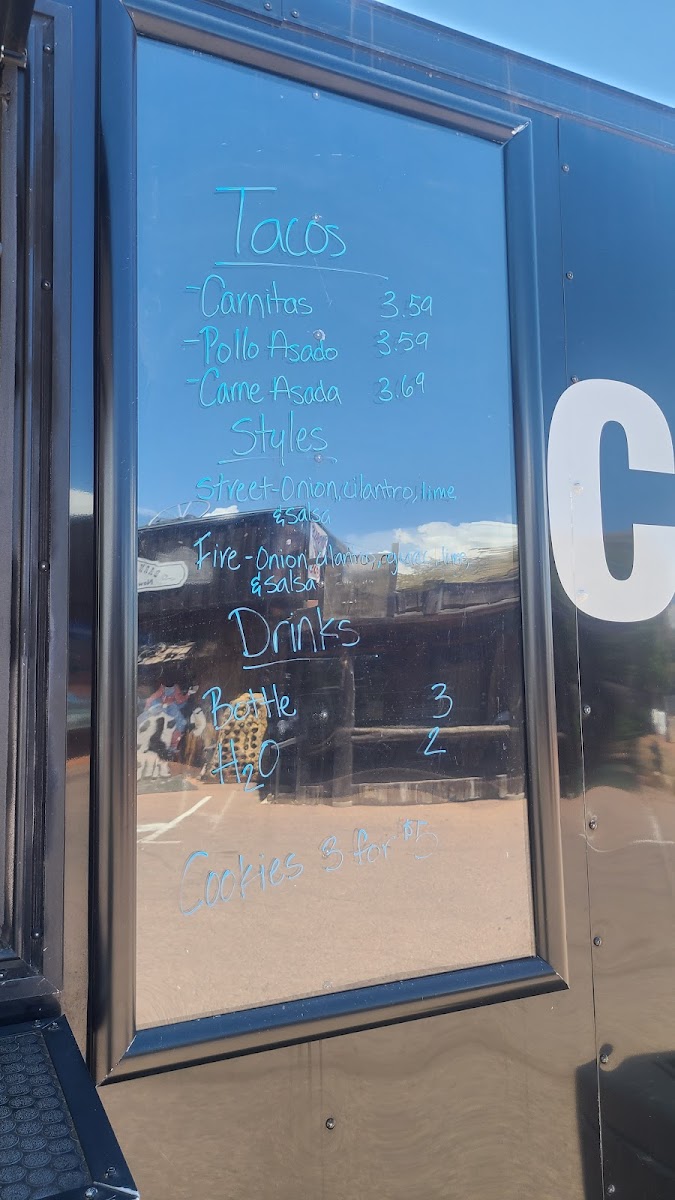 Tacos
-Carnitas 3.59
-Pollo Asado 3.59
-Carne Asada 3.69
Styles
Street-Onion, cilantro, lime
& Salsa
Fire-Onion, cilantro, lime,
& Salsa
Drinks
Bottle 3
H2O 2
Cookies 3 for $5
C